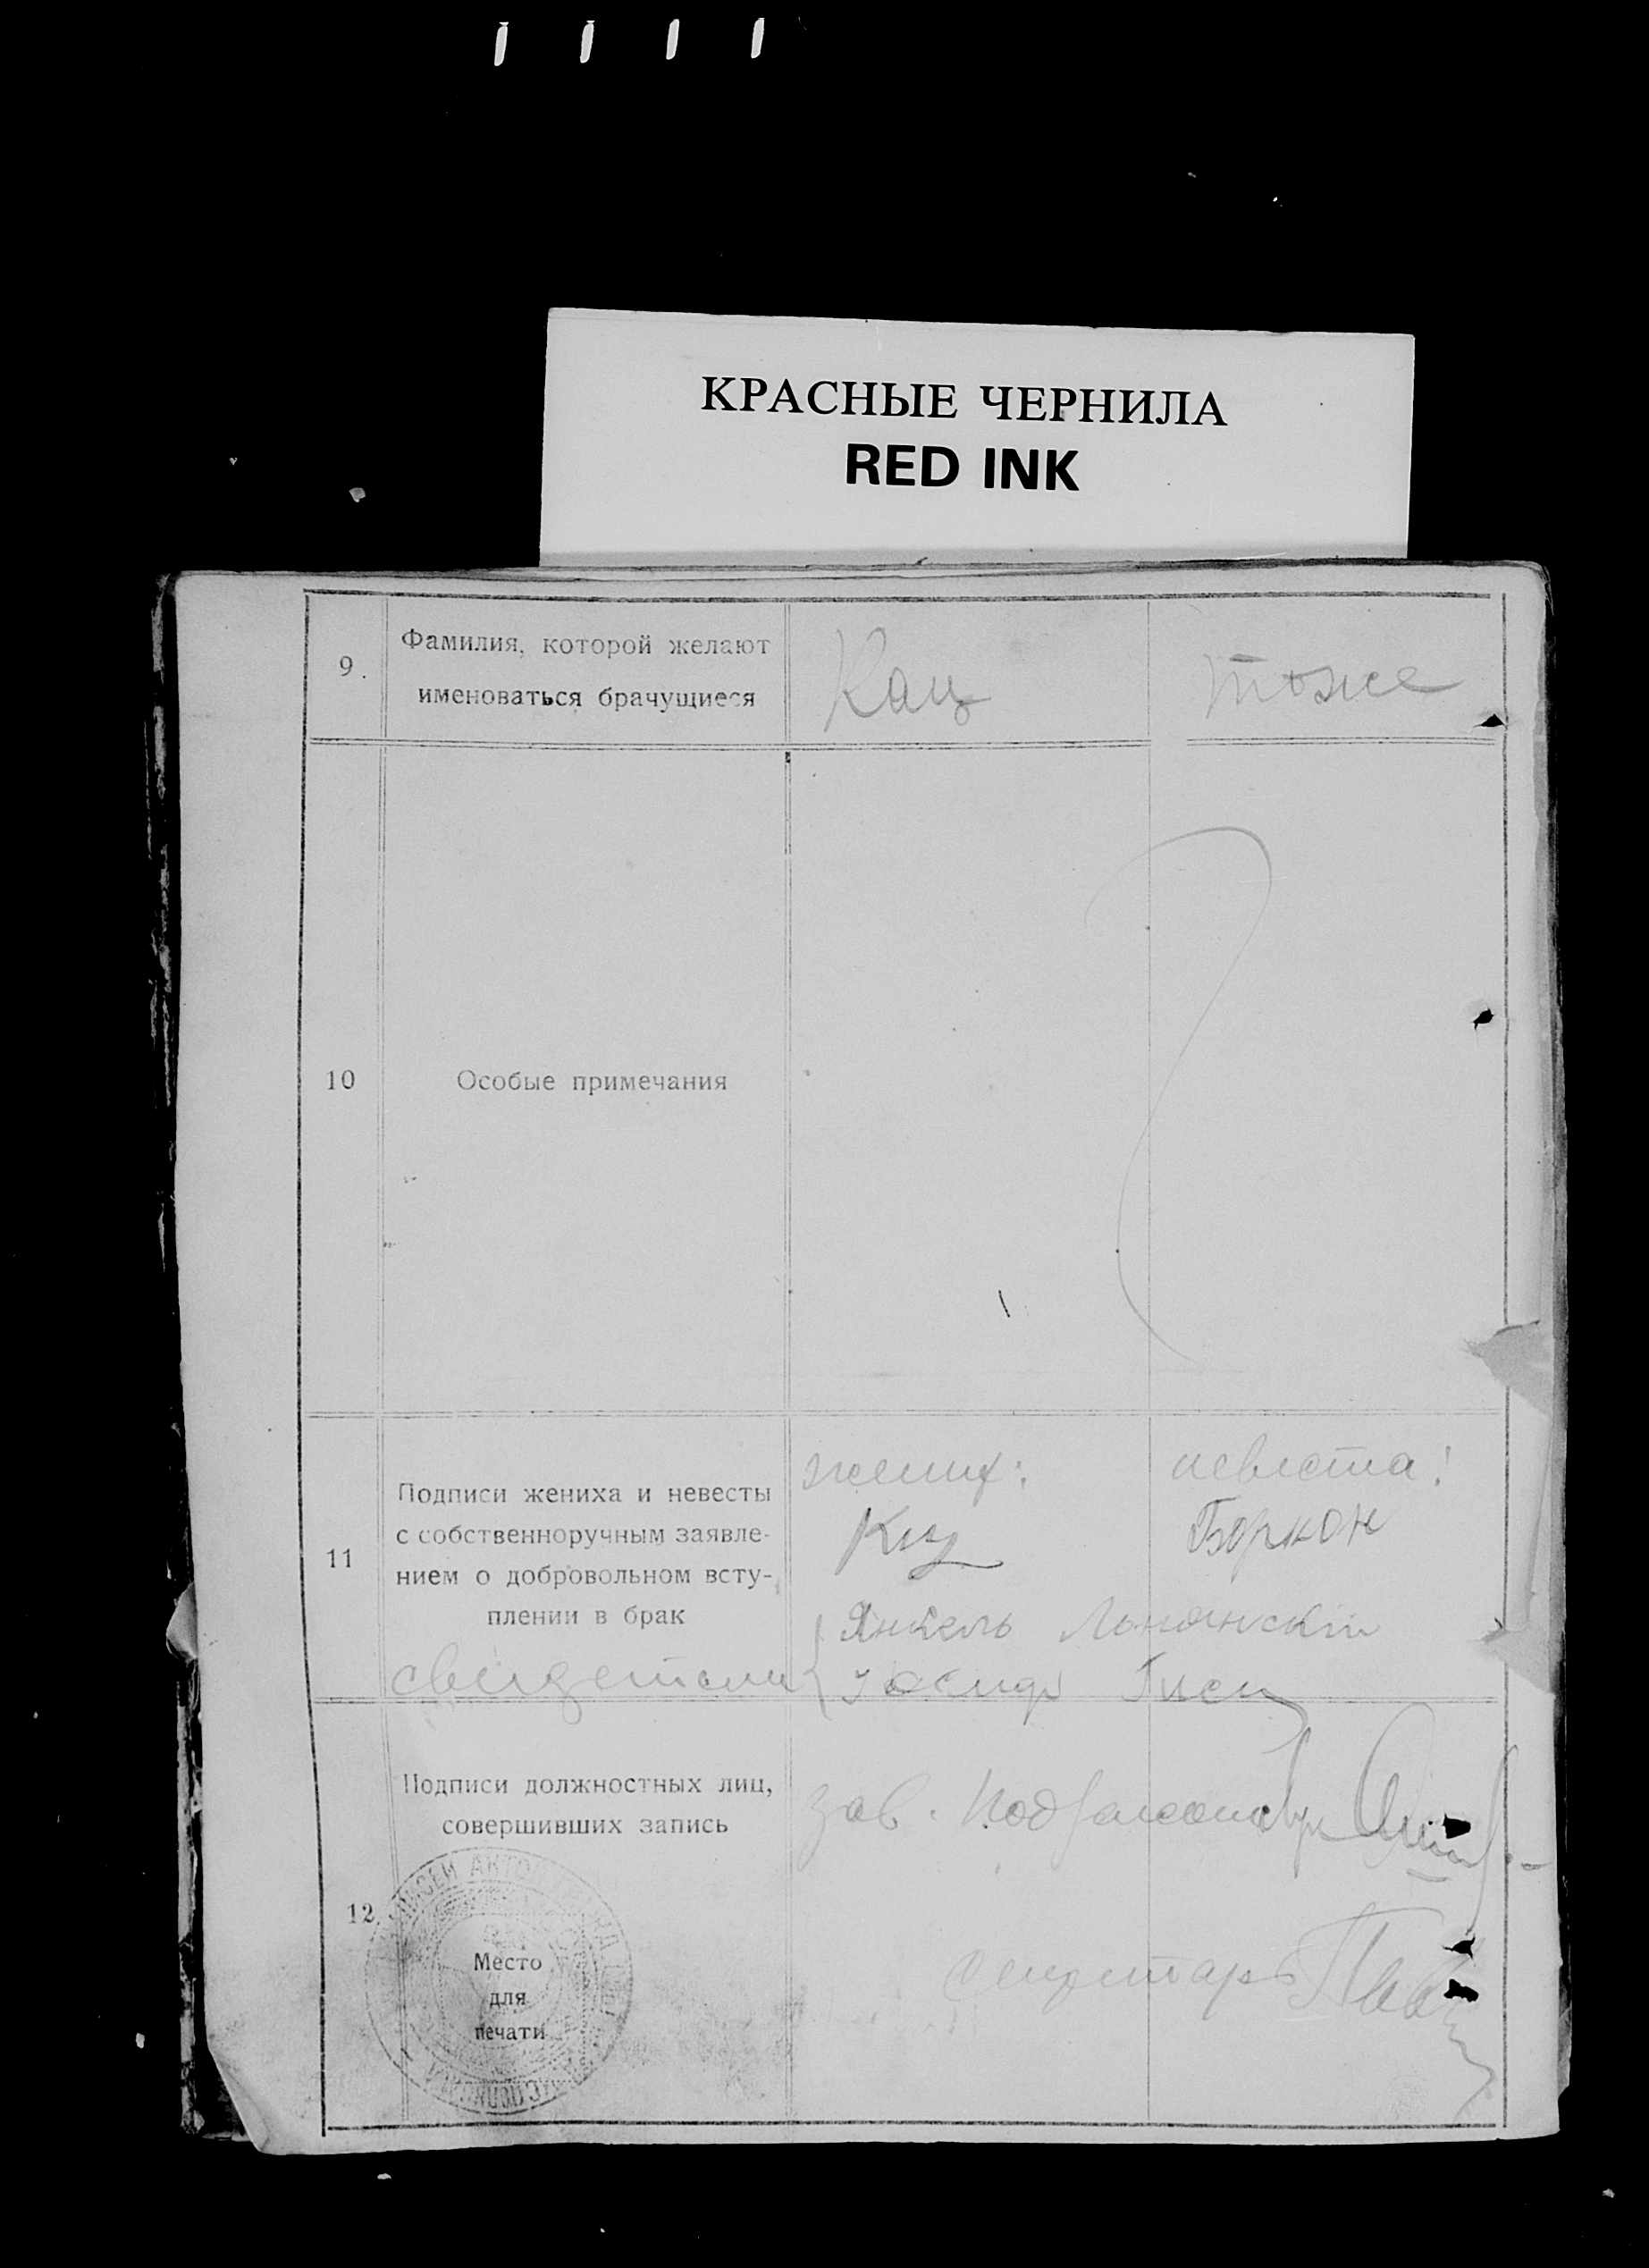 КРАСНЫЕ ЧЕРНИЛА
RED INK
9. Фамилия, которой желают именоваться брачущиеся
Кац
тоже
10 Особые примечания
11 Подписи жениха и невесты
с собственноручным заявле-
нием о добровольном всту-
плении в брак
жених: невеста:
Кац Боркон
Янкель
свидетели
12. Подписи должностных лиц,
совершивших запись
зав.
секретарь
Место
для
печати